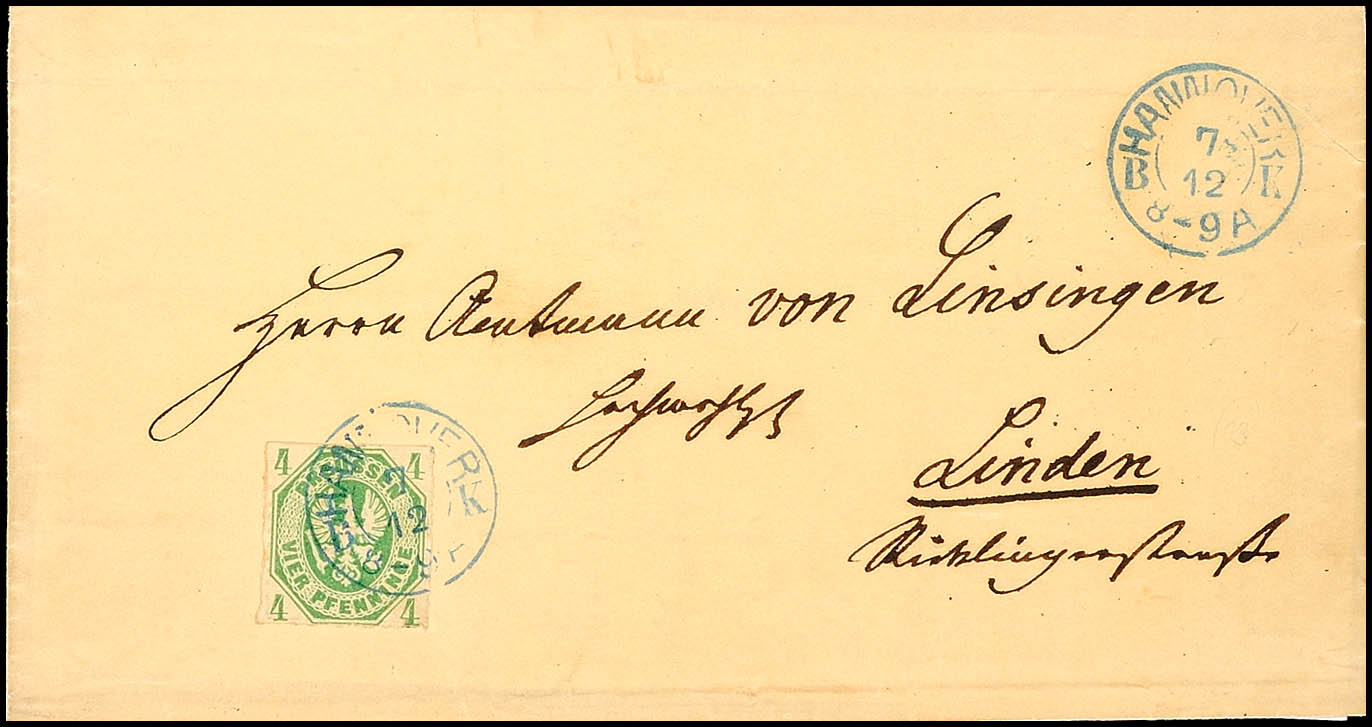 HANNOVER
7
12
B K
8-9A
Herrn Amtmann von Linsingen
Hochwohlgb
Linden
Ricklingerstraße
HANNOVER
7
12
B K
8-9A
4 4
PREUSSEN
VIER PFENNINGE
4 4